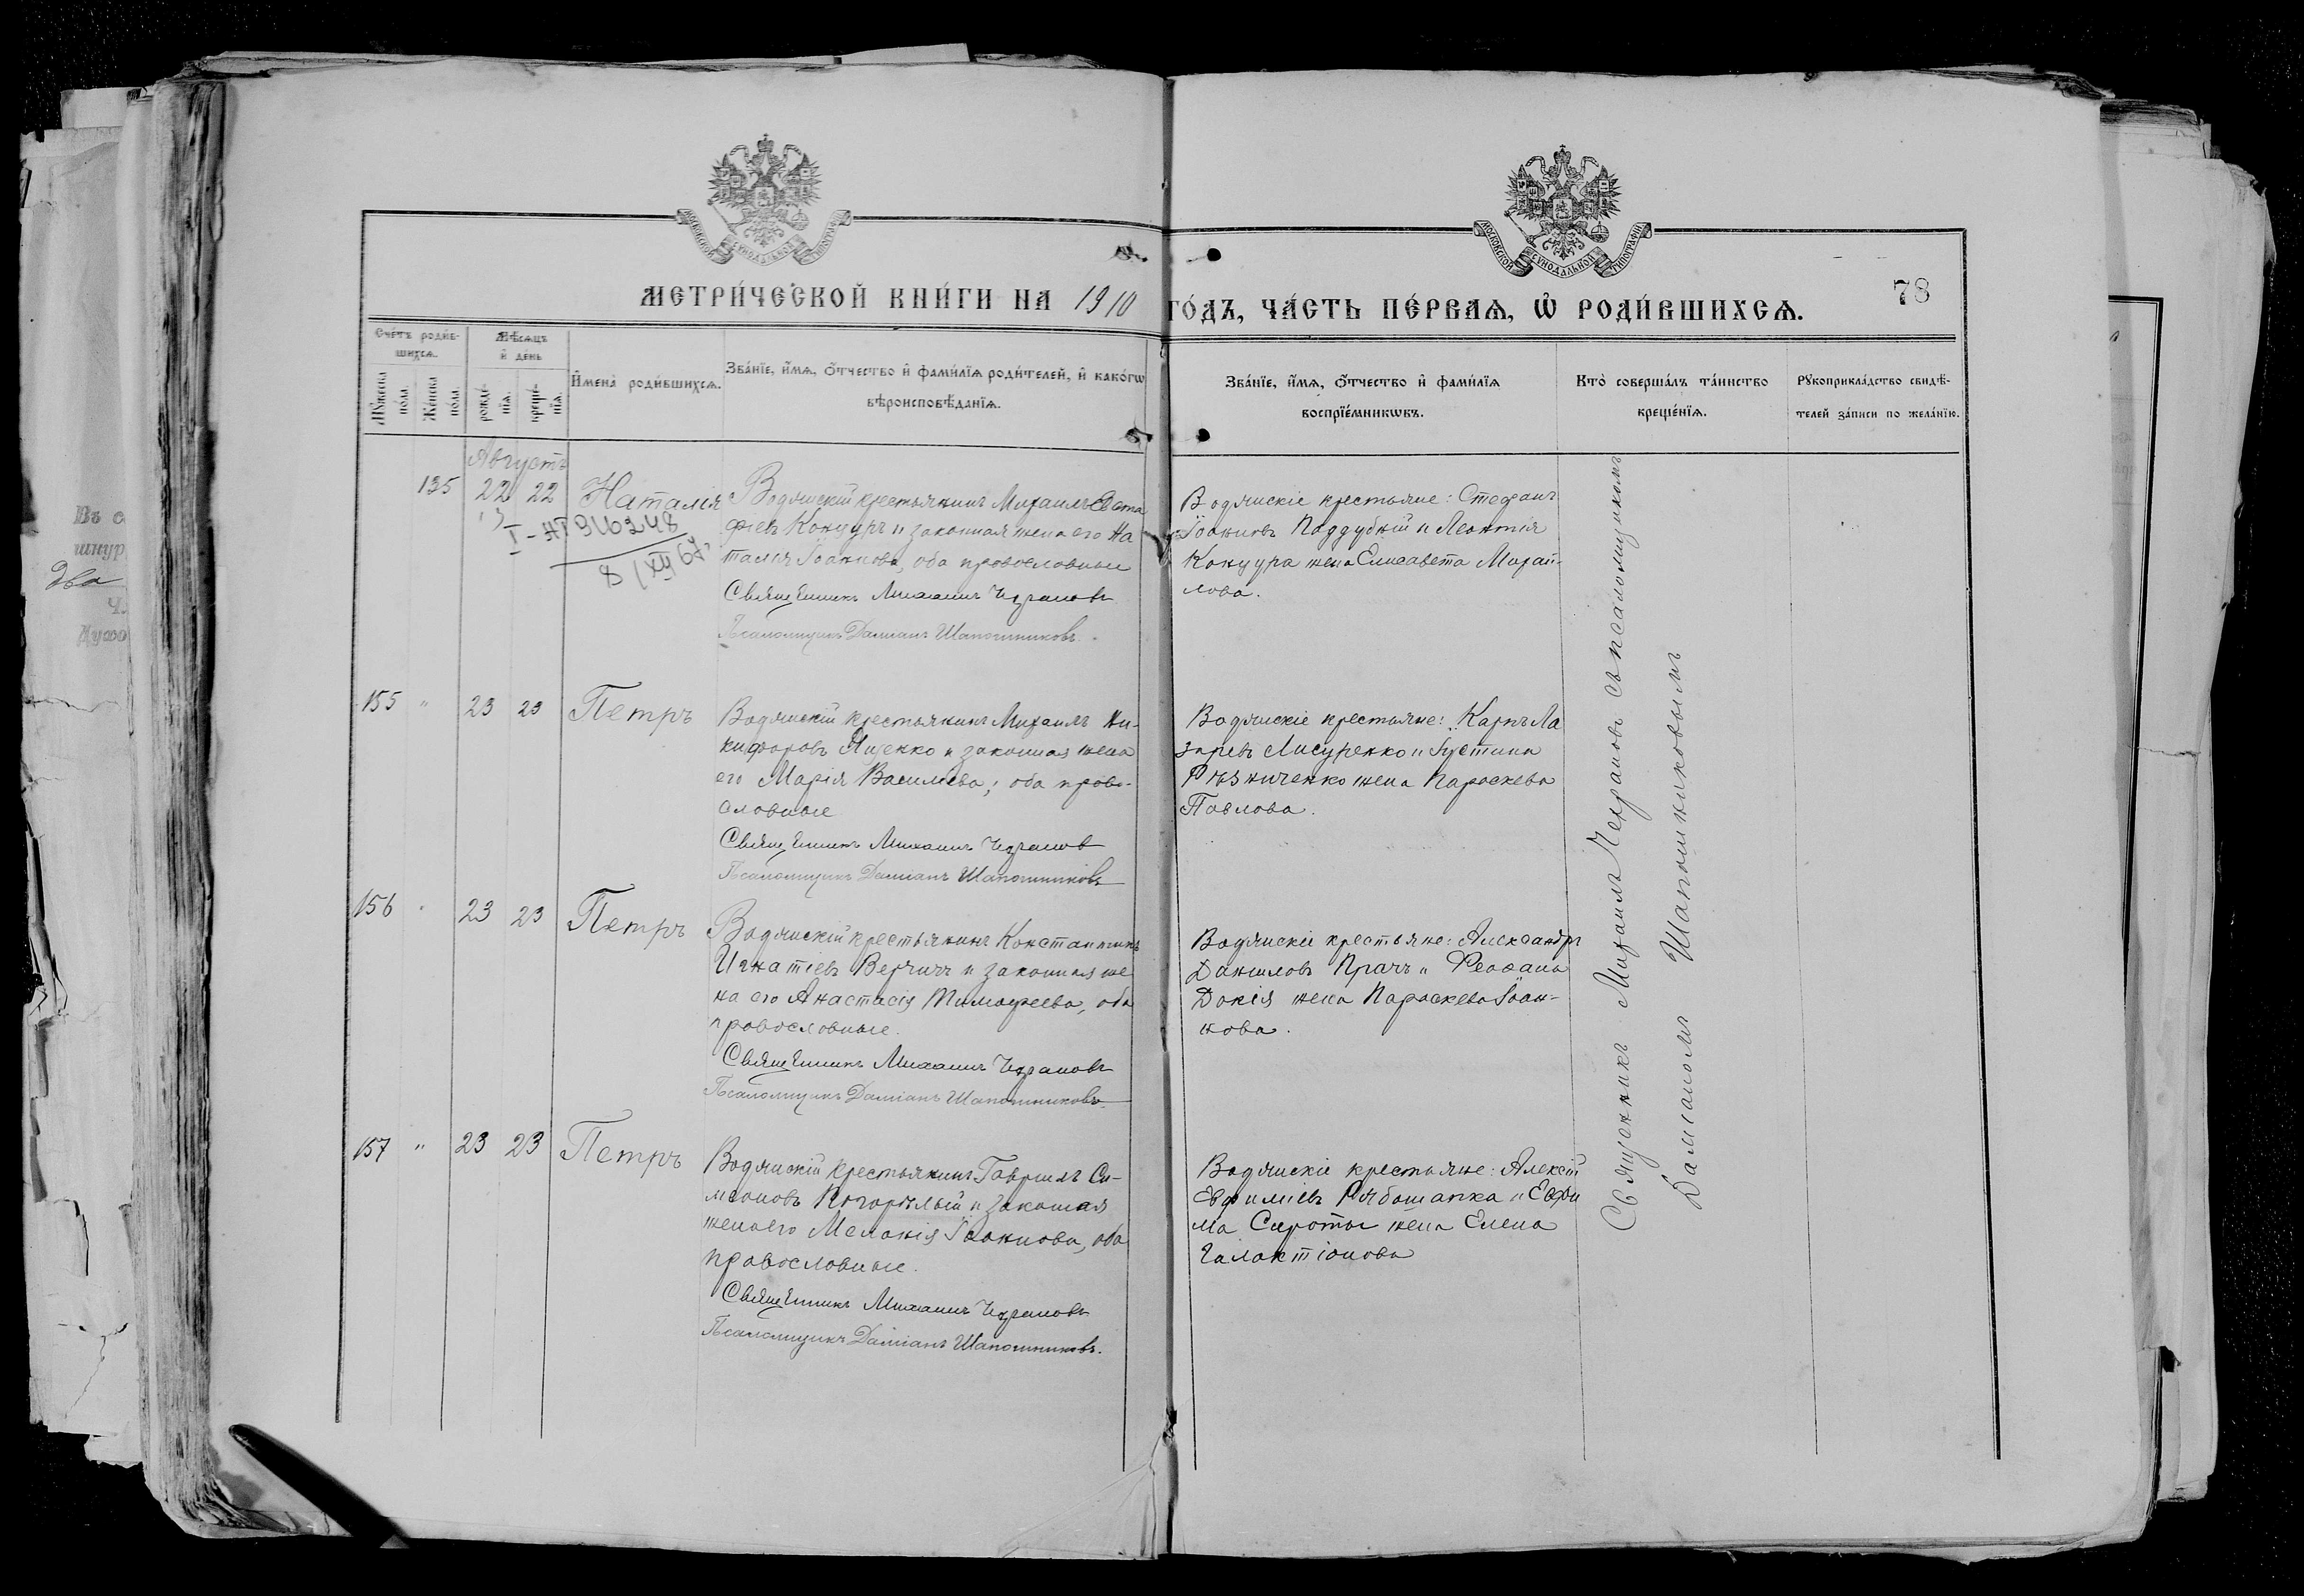 МОСКОВСКОЙ СѴНОДАЛЬНОЙ ТИПОГРАФІИ
МОСКОВСКОЙ СѴНОДАЛЬНОЙ ТИПОГРАФІИ
78
МЕТРИ́ЧЕСКОЙ КНИ́ГИ НА 1910 ГО́ДЪ, ЧА́СТЬ ПЕ́РВАѦ, Ѡ҆ РОДИ́ВШИХСѦ.
Сче́тъ роди́в-
шихсѧ.
Мꙋ́жеска по́ла.
Же́нска по́ла.
Мѣ́сѧцъ
и҆ де́нь
рожде́-
нїѧ.
креще́-
нїѧ.
И҆мена̀ роди́вшихсѧ.
Зва́нїе, и҆́мѧ, ѻ҆́тчество и҆ фами́лїѧ роди́телей, и҆ како́гѡ
вѣроисповѣ́данїѧ.
Зва́нїе, и҆́мѧ, ѻ҆́тчество и҆ фами́лїѧ
воспрїе́мникѡвъ.
Кто̀ соверша́лъ та́инство
креще́нїѧ.
Рꙋкоприкла́дство свидѣ́-
телей за́писи по жела́нїю.
Августъ
135 22 22 Наталія
Водянскій крестьянинъ Михаилъ Евста
фіевъ Концуръ и законная жена его На
талія Іоаннова, оба православные
Священникъ Михаилъ Чехрановъ
Псаломщикъ Даміанъ Шапошниковъ.
Водянскіе крестьяне: Стефанъ
Іоанновъ Поддубній и Леонтія
Концура жена Елисавета Михаи-
лова.
155 " 23 23 Петръ
Водянскій крестьянинъ Михаилъ Ни-
кифоровъ Яценко и законная жена
его Марія Васильева, оба право-
славные
Священникъ Михаилъ Чехрановъ
Псаломщикъ Даміанъ Шапошниковъ
Водянскіе крестьяне: Карпъ Ла
заревъ Лисуренко и Іустина
Рѣзниченко жена Параскева
Павлова.
156 " 23 23 Петръ
Водянскій крестьянинъ Константинъ
Игнатіевъ Верчичъ и законная же
на его Анастасія Тимофеева, оба
православные.
Священникъ Михаилъ Чехрановъ
Псаломщикъ Даміанъ Шапошниковъ
Водянскіе крестьяне: Александръ
Даниловъ Прачъ и
жена Параскева Іоан-
нова.
157 " 23 23 Петръ
Водянскій крестьянинъ Гавріилъ Си-
меоновъ Погорѣлый и законная
жена его Меланія Іоаннова, оба
православные.
Священникъ Михаилъ Чехрановъ
Псаломщикъ Даміанъ Шапошниковъ.
Водянскіе крестьяне: Алексій
Евфиміевъ Рябошапка и Евфи
ма Сироты жена Елена
Галактіонова
Священникъ Михаилъ Чехрановъ съ псаломщикомъ
Даміаномъ Шапошниковымъ